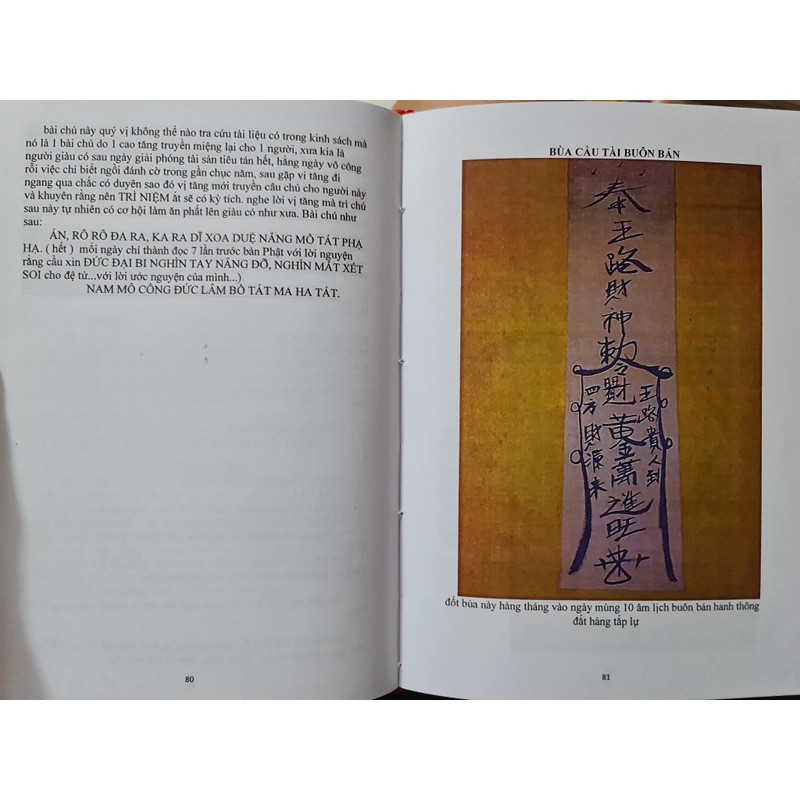 bài chú này quý vị không thể nào tra cứu tài liệu có trong kinh sách mà
nó là 1 bài chú do 1 cao tăng truyền miệng lại cho 1 người, xưa kia là
người giàu có sau ngày giải phóng tài sản tiêu tán hết, hằng ngày vô công
rồi việc chỉ biết ngồi đánh cờ trong gần chục năm, sau gặp vi tăng đi
ngang qua chắc có duyên sao đó vị tăng mới truyền câu chú cho người này
và khuyên rằng nên TRÌ NIỆM ắt sẽ có kỳ tích. nghe lời vị tăng mà trì chú
sau này tự nhiên có cơ hội làm ăn phất lên giàu có như xưa. Bài chú như
sau:
ÁN, RÔ RÔ ĐA RA, KA RA DĨ XOA DUỆ NẲNG MÔ TÁT PHẠ
HẠ. ( hết ) mỗi ngày chí thành đọc 7 lần trước bàn Phật với lời nguyện
rằng cầu xin ĐỨC ĐẠI BI NGHÌN TAY NÂNG ĐỠ, NGHÌN MẮT XÉT
SOI cho đệ tử...với lời ước nguyện của mình...)
NAM MÔ CÔNG ĐỨC LÂM BỒ TÁT MA HA TÁT.
80
BÙA CẦU TÀI BUÔN BÁN
奉王路財神勅令
王路貴人到
黃金萬進旺
四方財源來
đốt bùa này hàng tháng vào ngày mùng 10 âm lịch buôn bán hanh thông
đắt hàng tấp lự
81